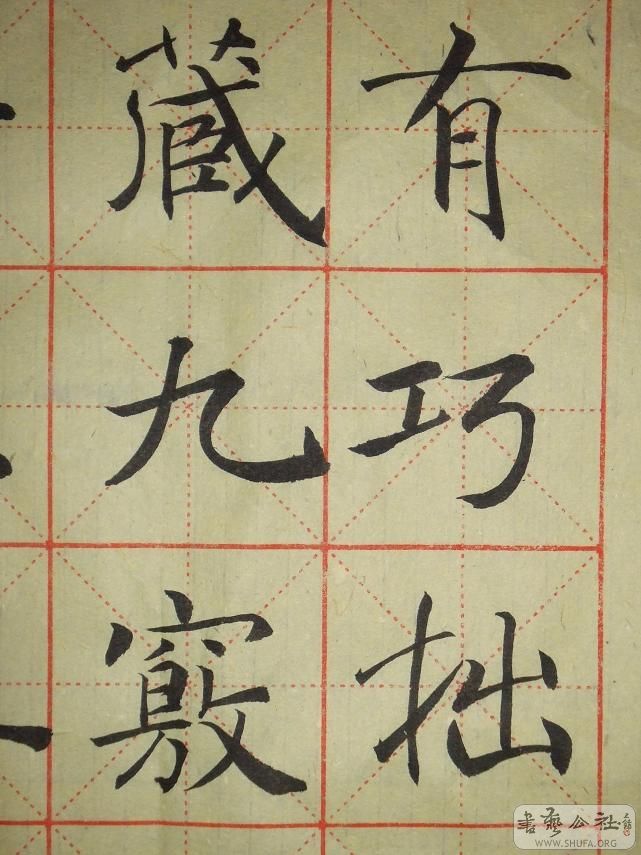 有巧拙
藏九竅
書藝公社
WWW.SHUFA.ORG